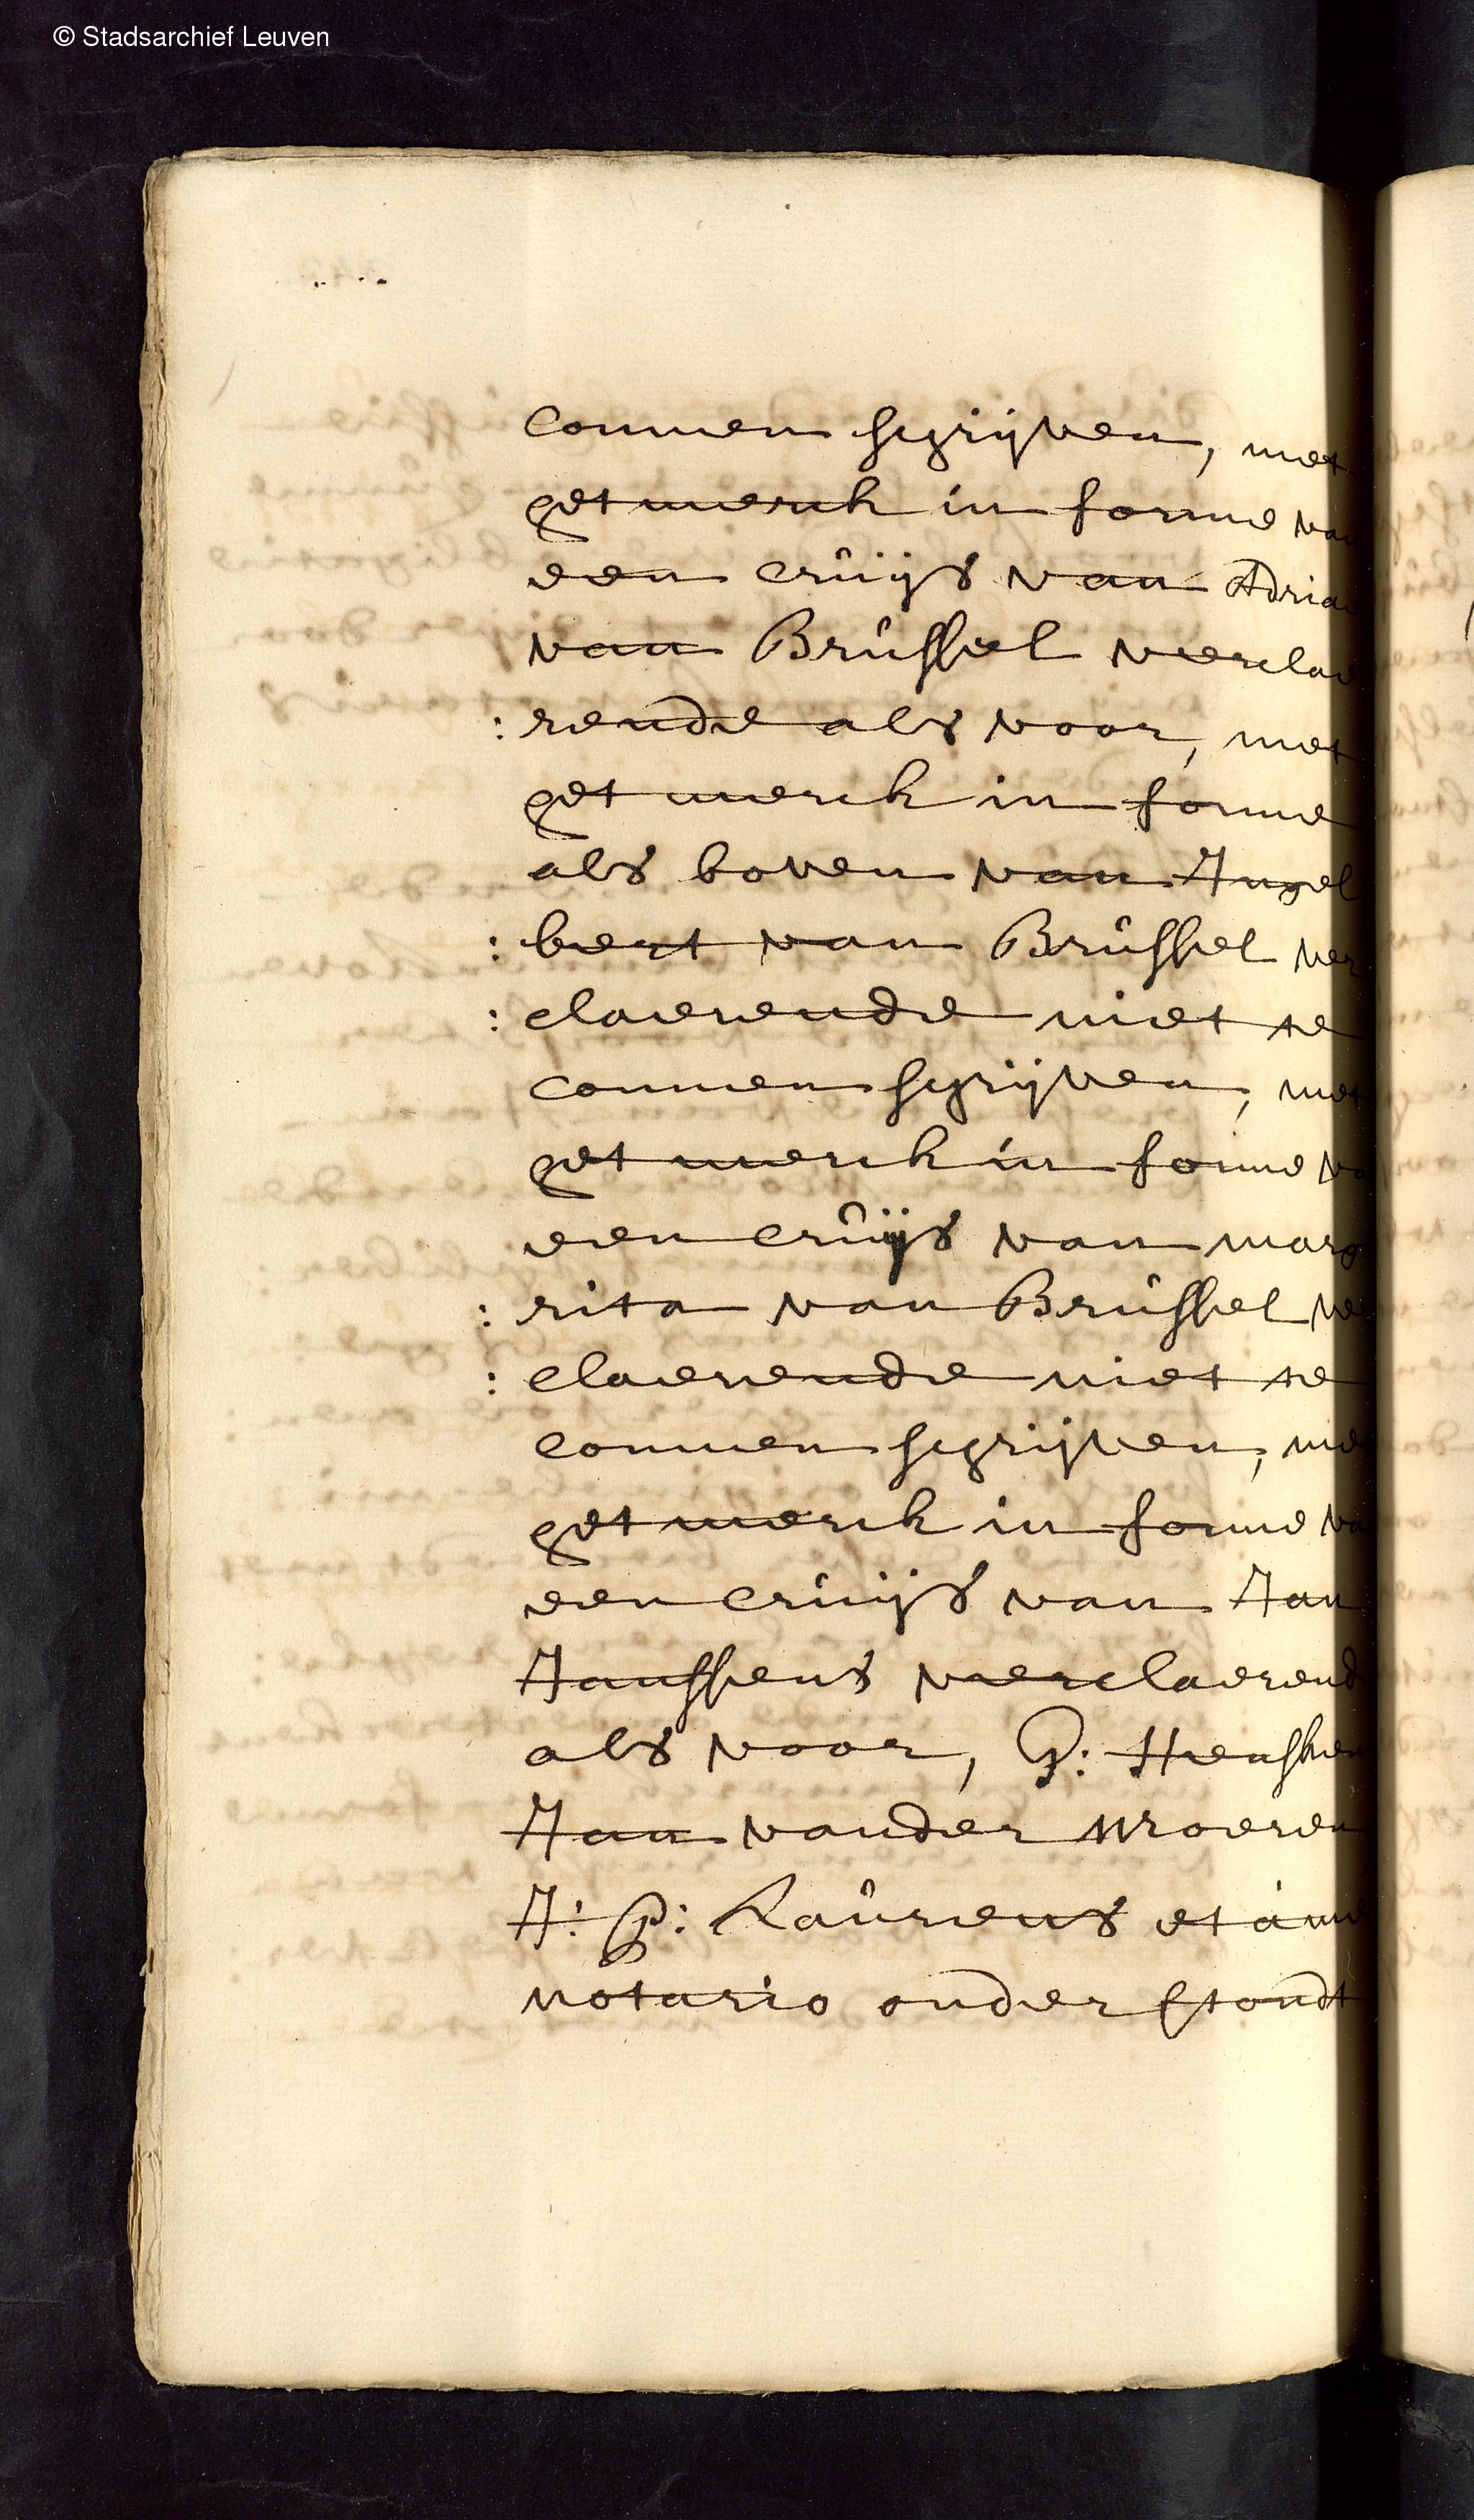 © Stadsarchief Leuven
connen schrijven, met
het merck in forme van
een cruijs van Adriae
van Brussel verclae
: rende als voor, met
het merck in forme
als boven van Ingel
: bert van Brussel ver
: claerende niet te
connen schrijven, met
het merck in forme va
een cruijs van marg
: rita van Brussel ve
: claerende niet te
connen schrijven, me
het merck in forme va
een cruijs van Jan
Janssens verclaerend
als voor, P: Hensken
Jan vander Moeren
J: P: Laurens et a me
notario onder stondt